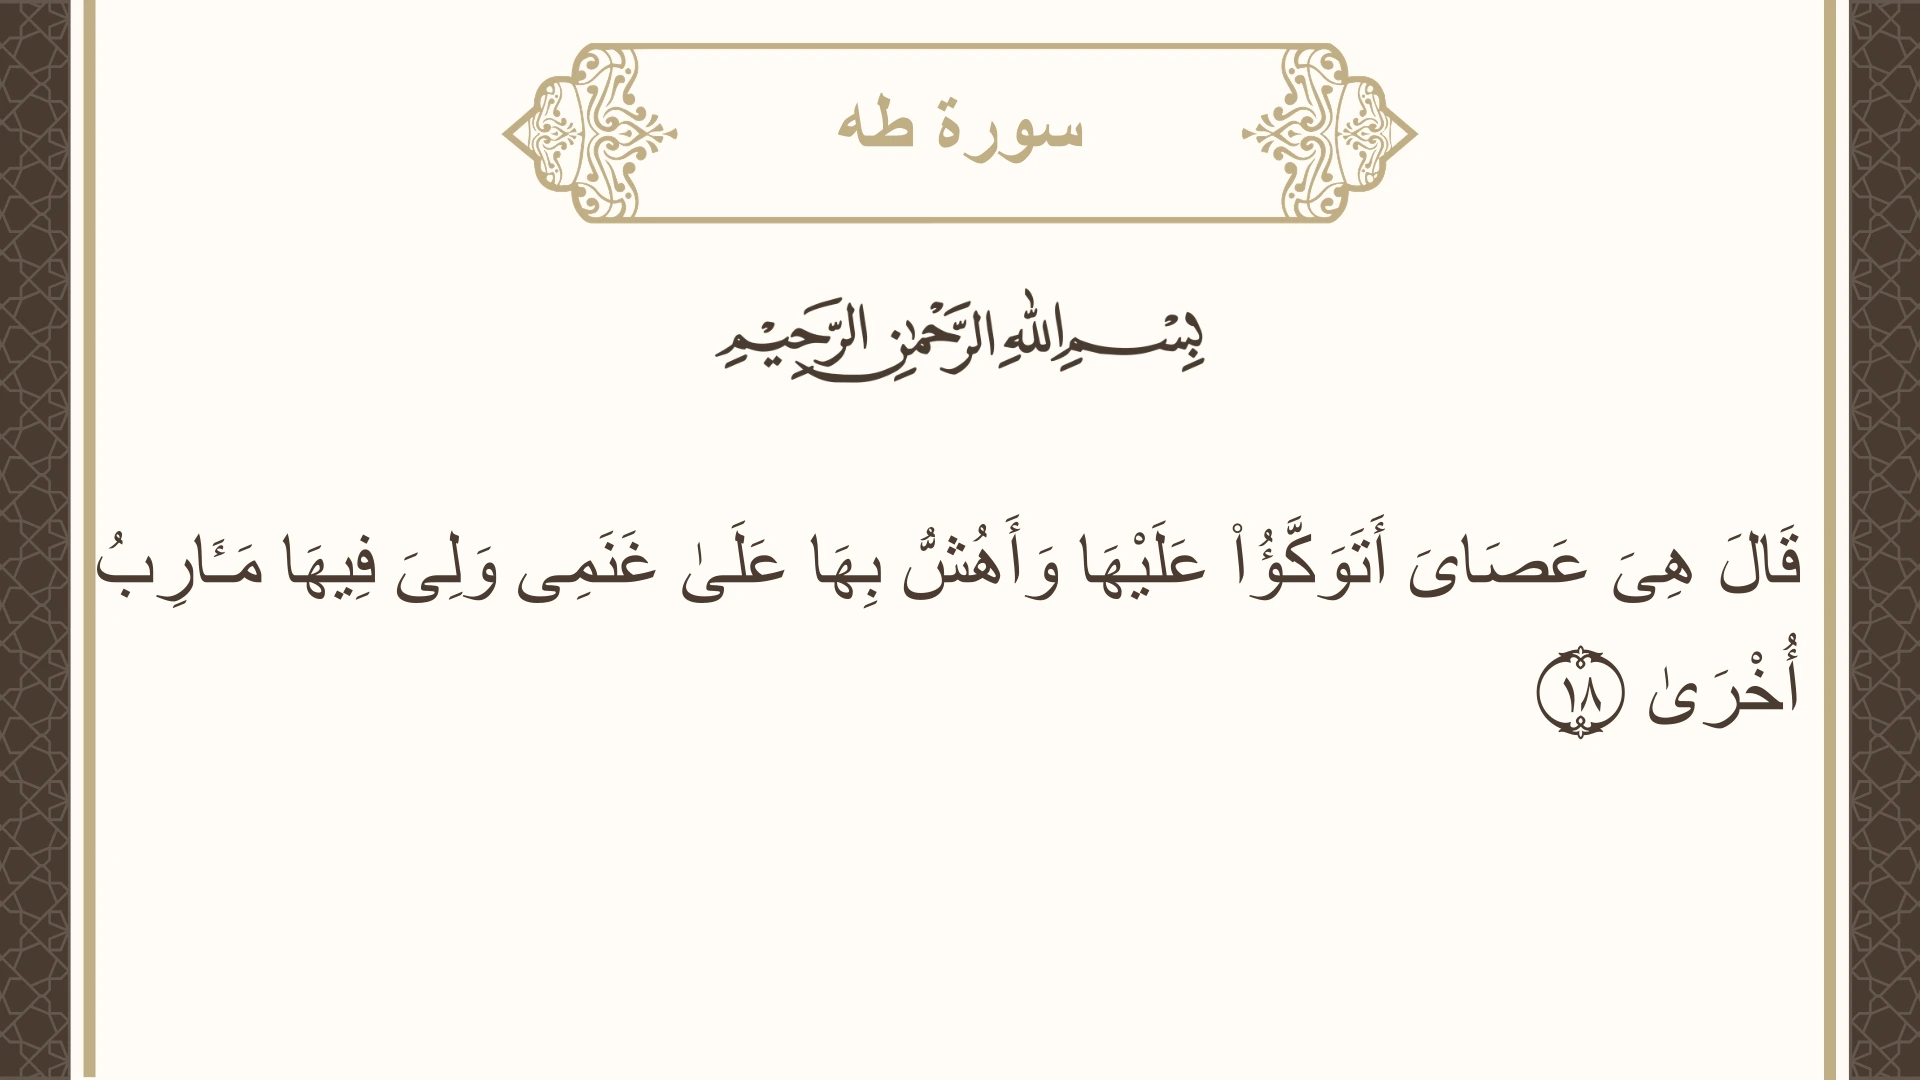 سورة طه
بِسْمِ اللهِ الرَّحْمٰنِ الرَّحِيْمِ
قَالَ هِىَ عَصَاىَ أَتَوَكَّؤُا۟ عَلَيْهَا وَأَهُشُّ بِهَا عَلَىٰ غَنَمِى وَلِىَ فِيهَا مَـَٔارِبُ
أُخْرَىٰ ١٨